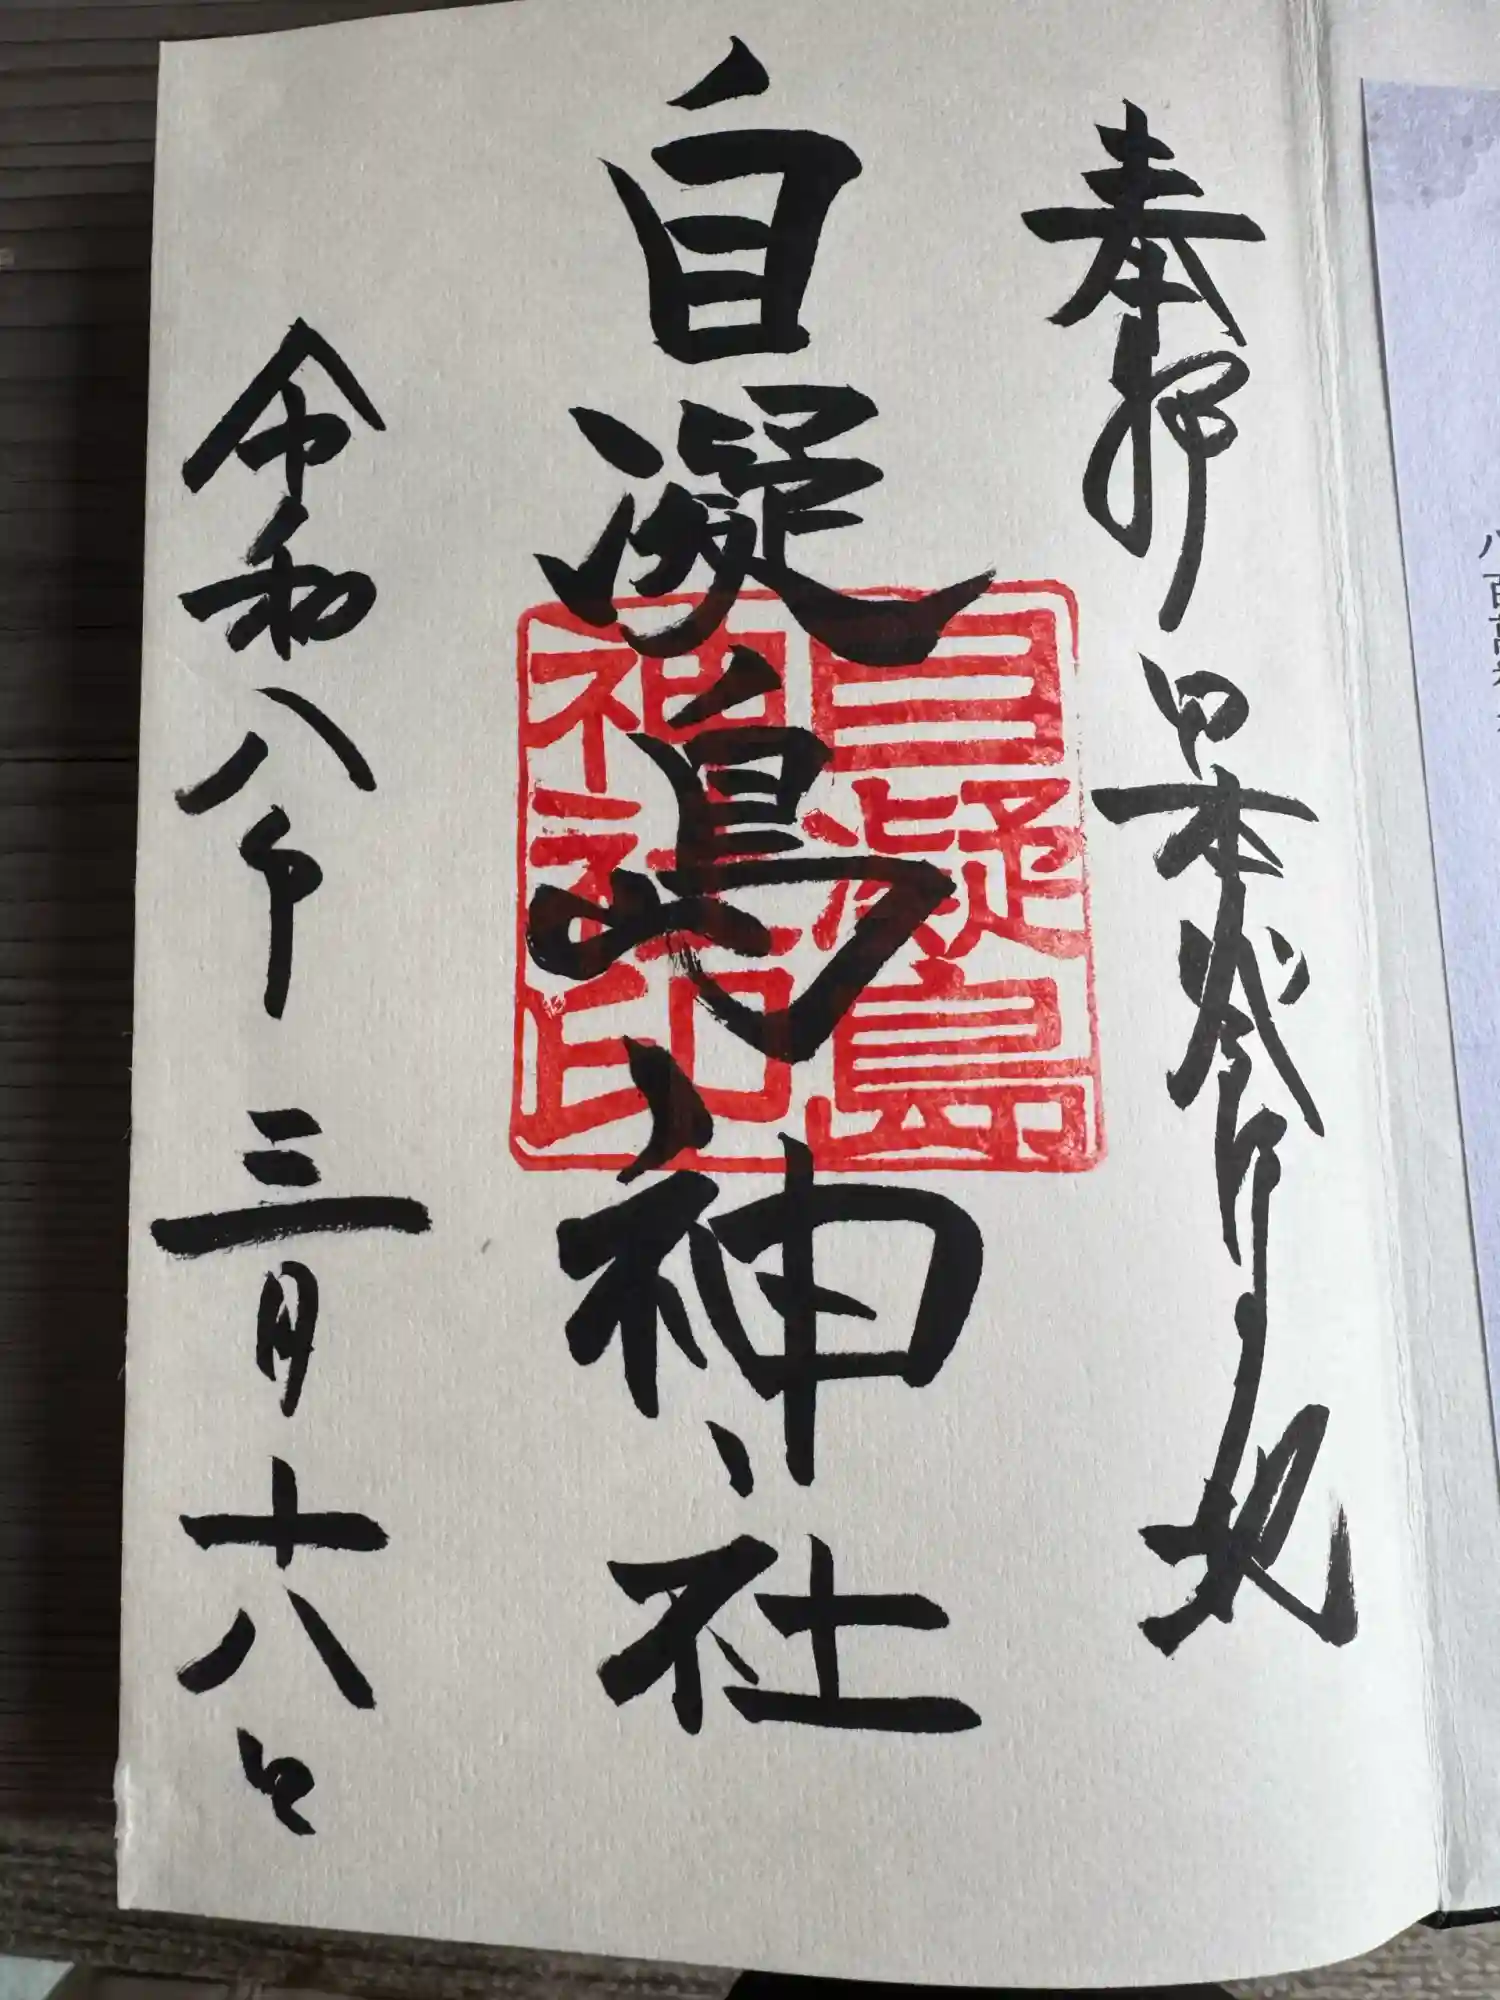 奉拝 日本発祥 地
自凝島神社
自凝島
神社印
令和八年 三月十八日
八百